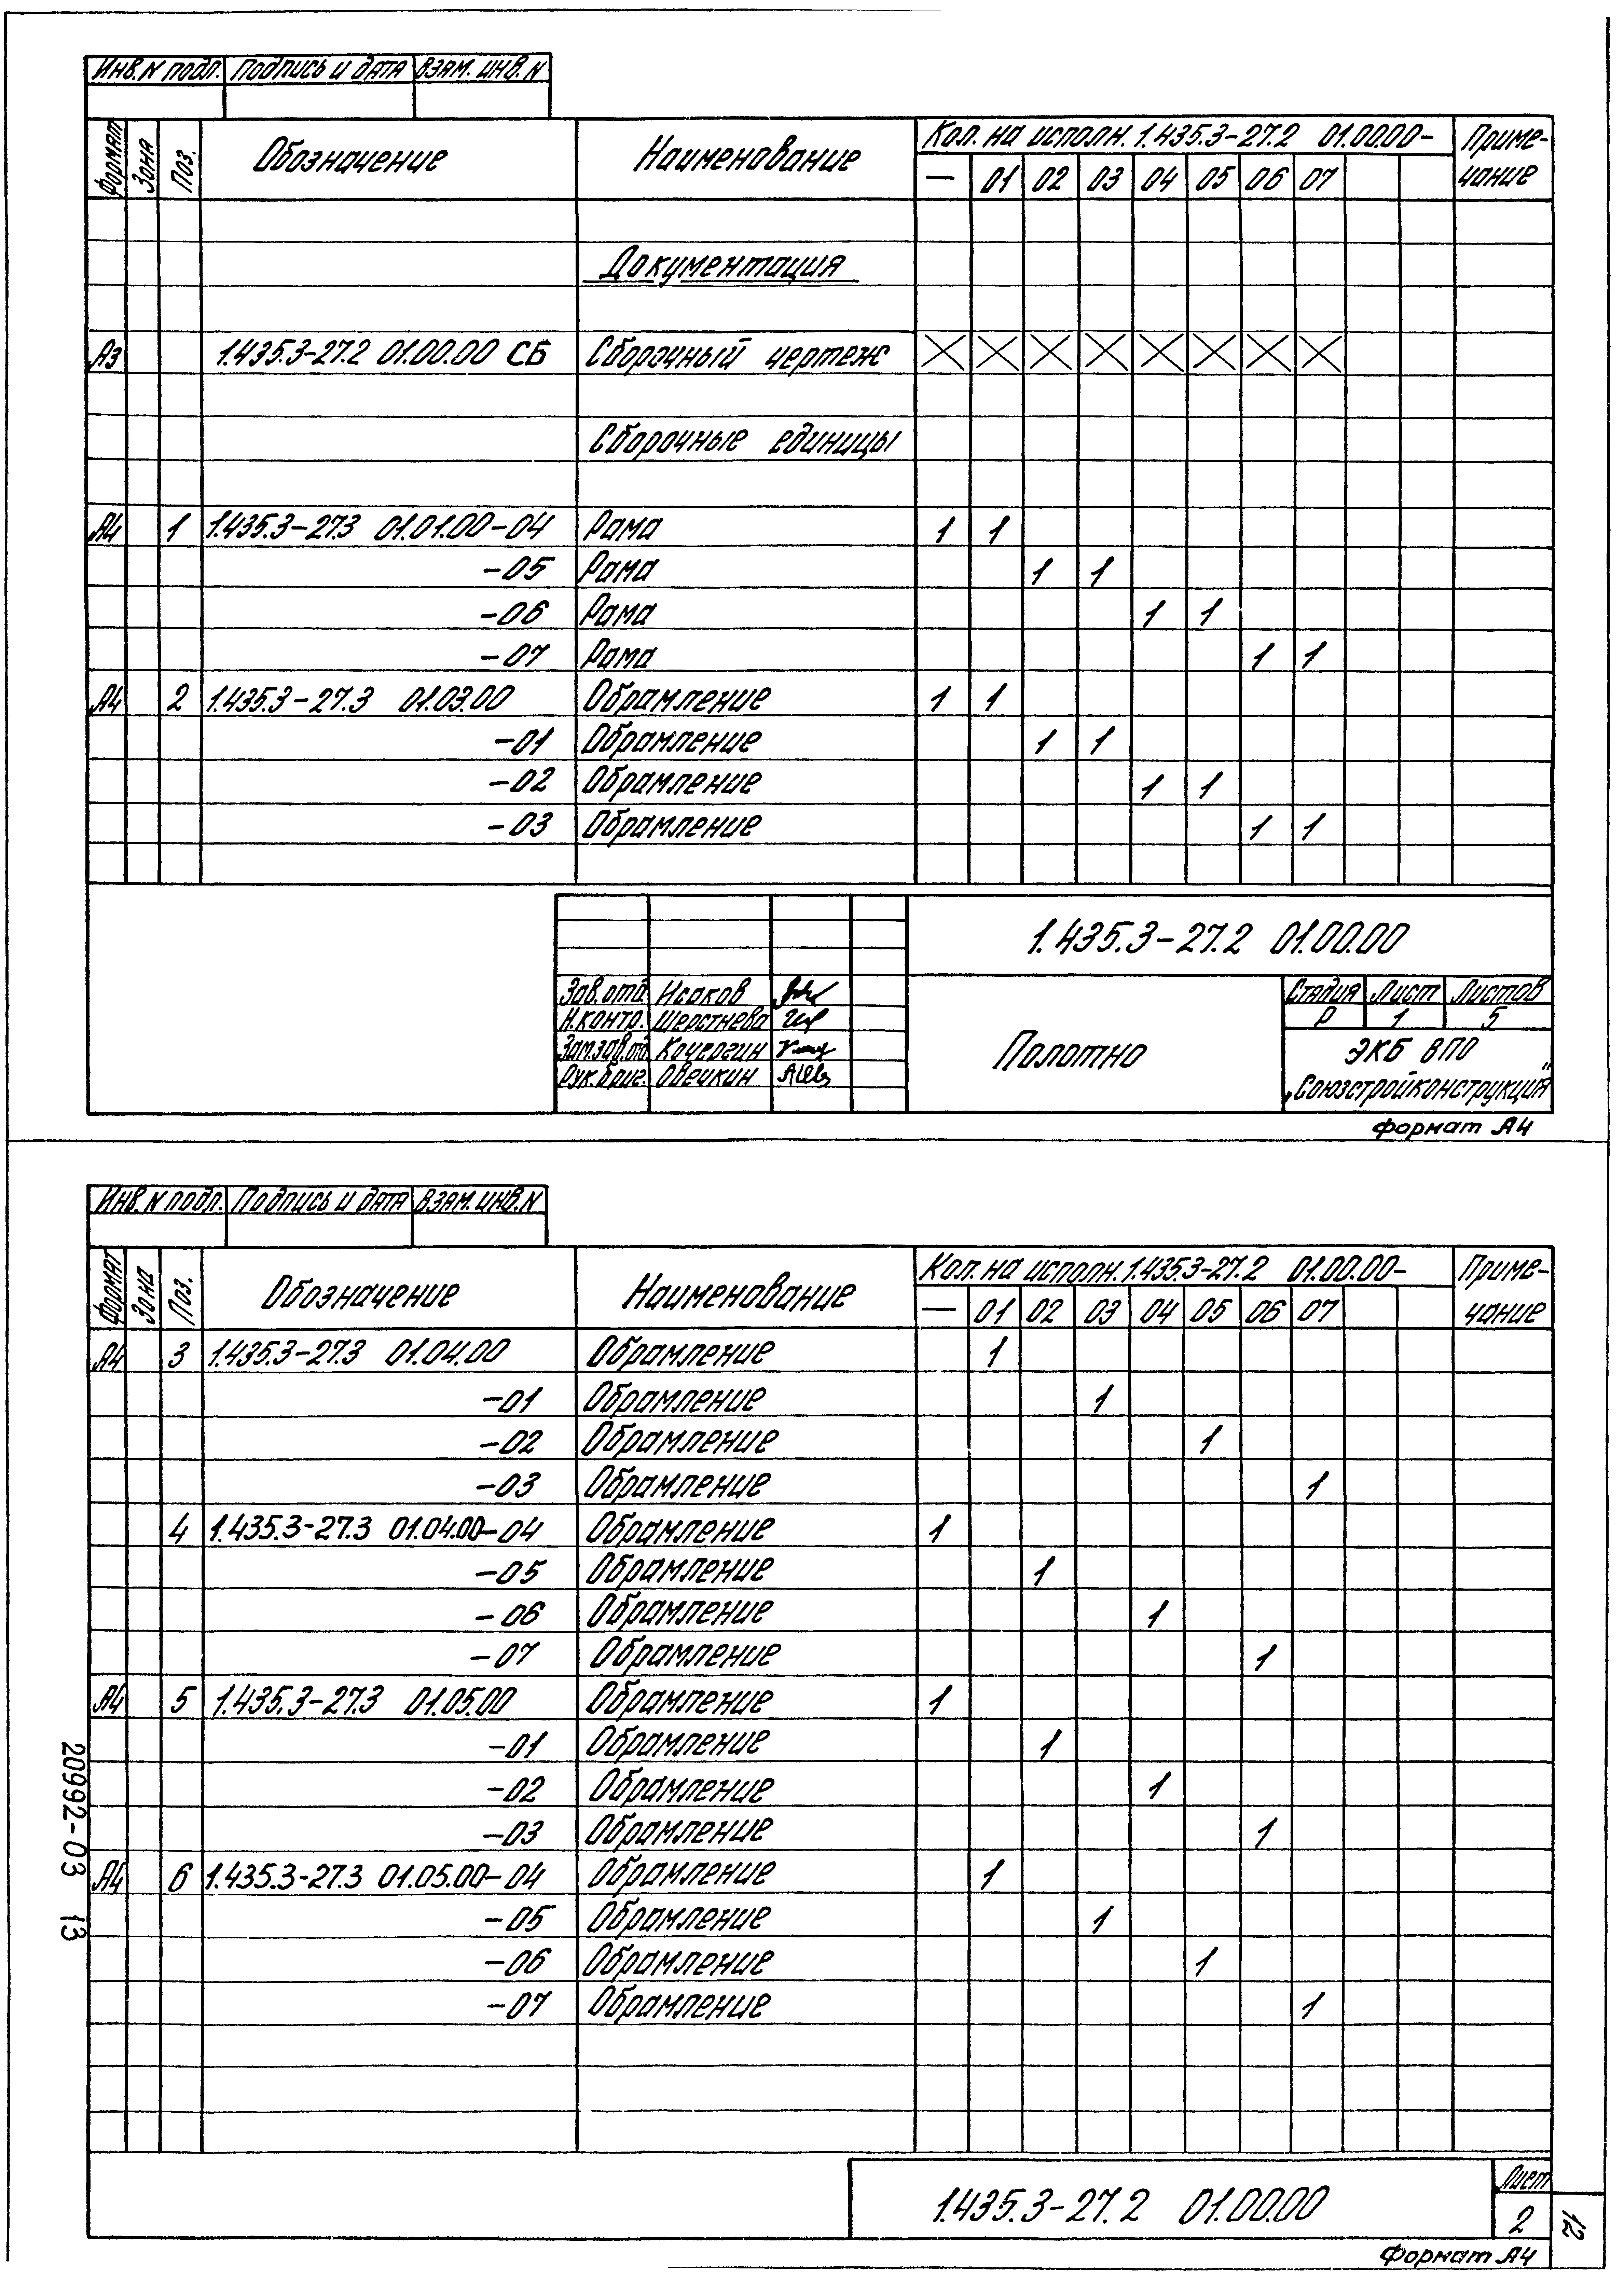 Инв.N подл. Подпись и дата Взам. инв. N
Формат Зона Поз. Обозначение Наименование Кол. на исполн. 1.435.3-27.2 01.00.00- Приме-
— 01 02 03 04 05 06 07 чание
Документация
А3 1.435.3-27.2 01.00.00 СБ Сборочный чертеж X X X X X X X X
Сборочные единицы
А4 1 1.435.3-27.3 01.01.00-04 Рама 1 1
-05 Рама 1 1
-06 Рама 1 1
-07 Рама 1 1
А4 2 1.435.3-27.3 01.03.00 Обрамление 1 1
-01 Обрамление 1 1
-02 Обрамление 1 1
-03 Обрамление 1 1
1.435.3-27.2 01.00.00
Зав.отд. Исаков
Н.контр. Шерстнева
Зам.зав.отд Кочергин
Рук.бриг. Овечкин
Полотно
Стадия Лист Листов
Р 1 5
ЭКБ ВПО
„Союзстройконструкция"
Формат А4
Инв.N подл. Подпись и дата Взам. инв.N
Формат Зона Поз. Обозначение Наименование Кол. на исполн. 1.435.3-27.2 01.00.00- Приме-
— 01 02 03 04 05 06 07 чание
А4 3 1.435.3-27.3 01.04.00 Обрамление 1
-01 Обрамление 1
-02 Обрамление 1
-03 Обрамление 1
4 1.435.3-27.3 01.04.00-04 Обрамление 1
-05 Обрамление 1
-06 Обрамление 1
-07 Обрамление 1
А4 5 1.435.3-27.3 01.05.00 Обрамление 1
-01 Обрамление 1
-02 Обрамление 1
-03 Обрамление 1
А4 6 1.435.3-27.3 01.05.00-04 Обрамление 1
-05 Обрамление 1
-06 Обрамление 1
-07 Обрамление 1
20992-03 13
1.435.3-27.2 01.00.00
Лист
2
12
Формат А4